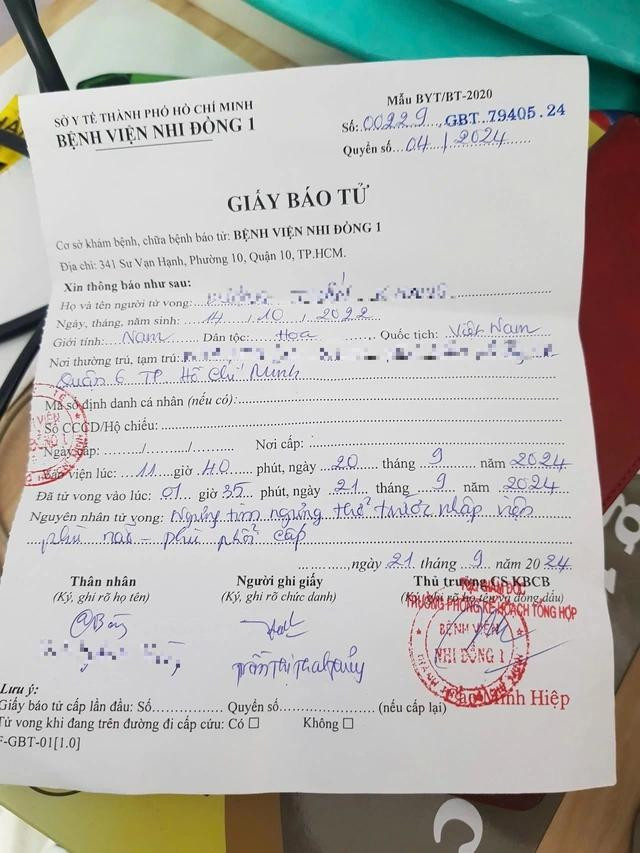 SỞ Y TẾ THÀNH PHỐ HỒ CHÍ MINH
BỆNH VIỆN NHI ĐỒNG 1
Mẫu BYT/BT-2020
Số: 00229 GBT 79405.24
Quyển số 04 / 2024
GIẤY BÁO TỬ
Cơ sở khám bệnh, chữa bệnh báo tử: BỆNH VIỆN NHI ĐỒNG 1
Địa chỉ: 341 Sư Vạn Hạnh, Phường 10, Quận 10, TP.HCM.
Xin thông báo như sau:
Họ và tên người tử vong:
Ngày, tháng, năm sinh: 14 / 10 / 2022
Giới tính: Nam Dân tộc: Hoa Quốc tịch: Việt Nam
Nơi thường trú, tạm trú:
Quận 6 TP Hồ Chí Minh
Mã số định danh cá nhân (nếu có):
Số CCCD/Hộ chiếu:
Ngày cấp: ....../....../...... Nơi cấp:
Vào viện lúc: 11 giờ 40 phút, ngày 20 tháng 9 năm 2024
Đã tử vong vào lúc: 01 giờ 35 phút, ngày 21 tháng 9 năm 2024
Nguyên nhân tử vong: Ngưng tim ngưng thở trước nhập viện
phù não - phù phổi cấp
............,ngày 21 tháng 9 năm 2024
Thân nhân Người ghi giấy Thủ trưởng CS KBCB
(Ký, ghi rõ họ tên) (Ký, ghi rõ chức danh) (Ký, ghi rõ họ tên và đóng dấu)
TRƯỞNG PHÒNG KẾ HOẠCH TỔNG HỢP
BỆNH VIỆN
NHI ĐỒNG 1
Trần Thị Thanh Thủy
Minh Hiệp
Lưu ý:
Giấy báo tử cấp lần đầu: Số.................. Quyển số.................. (nếu cấp lại)
Tử vong khi đang trên đường đi cấp cứu: Có ☐ Không ☐
F-GBT-01[1.0]